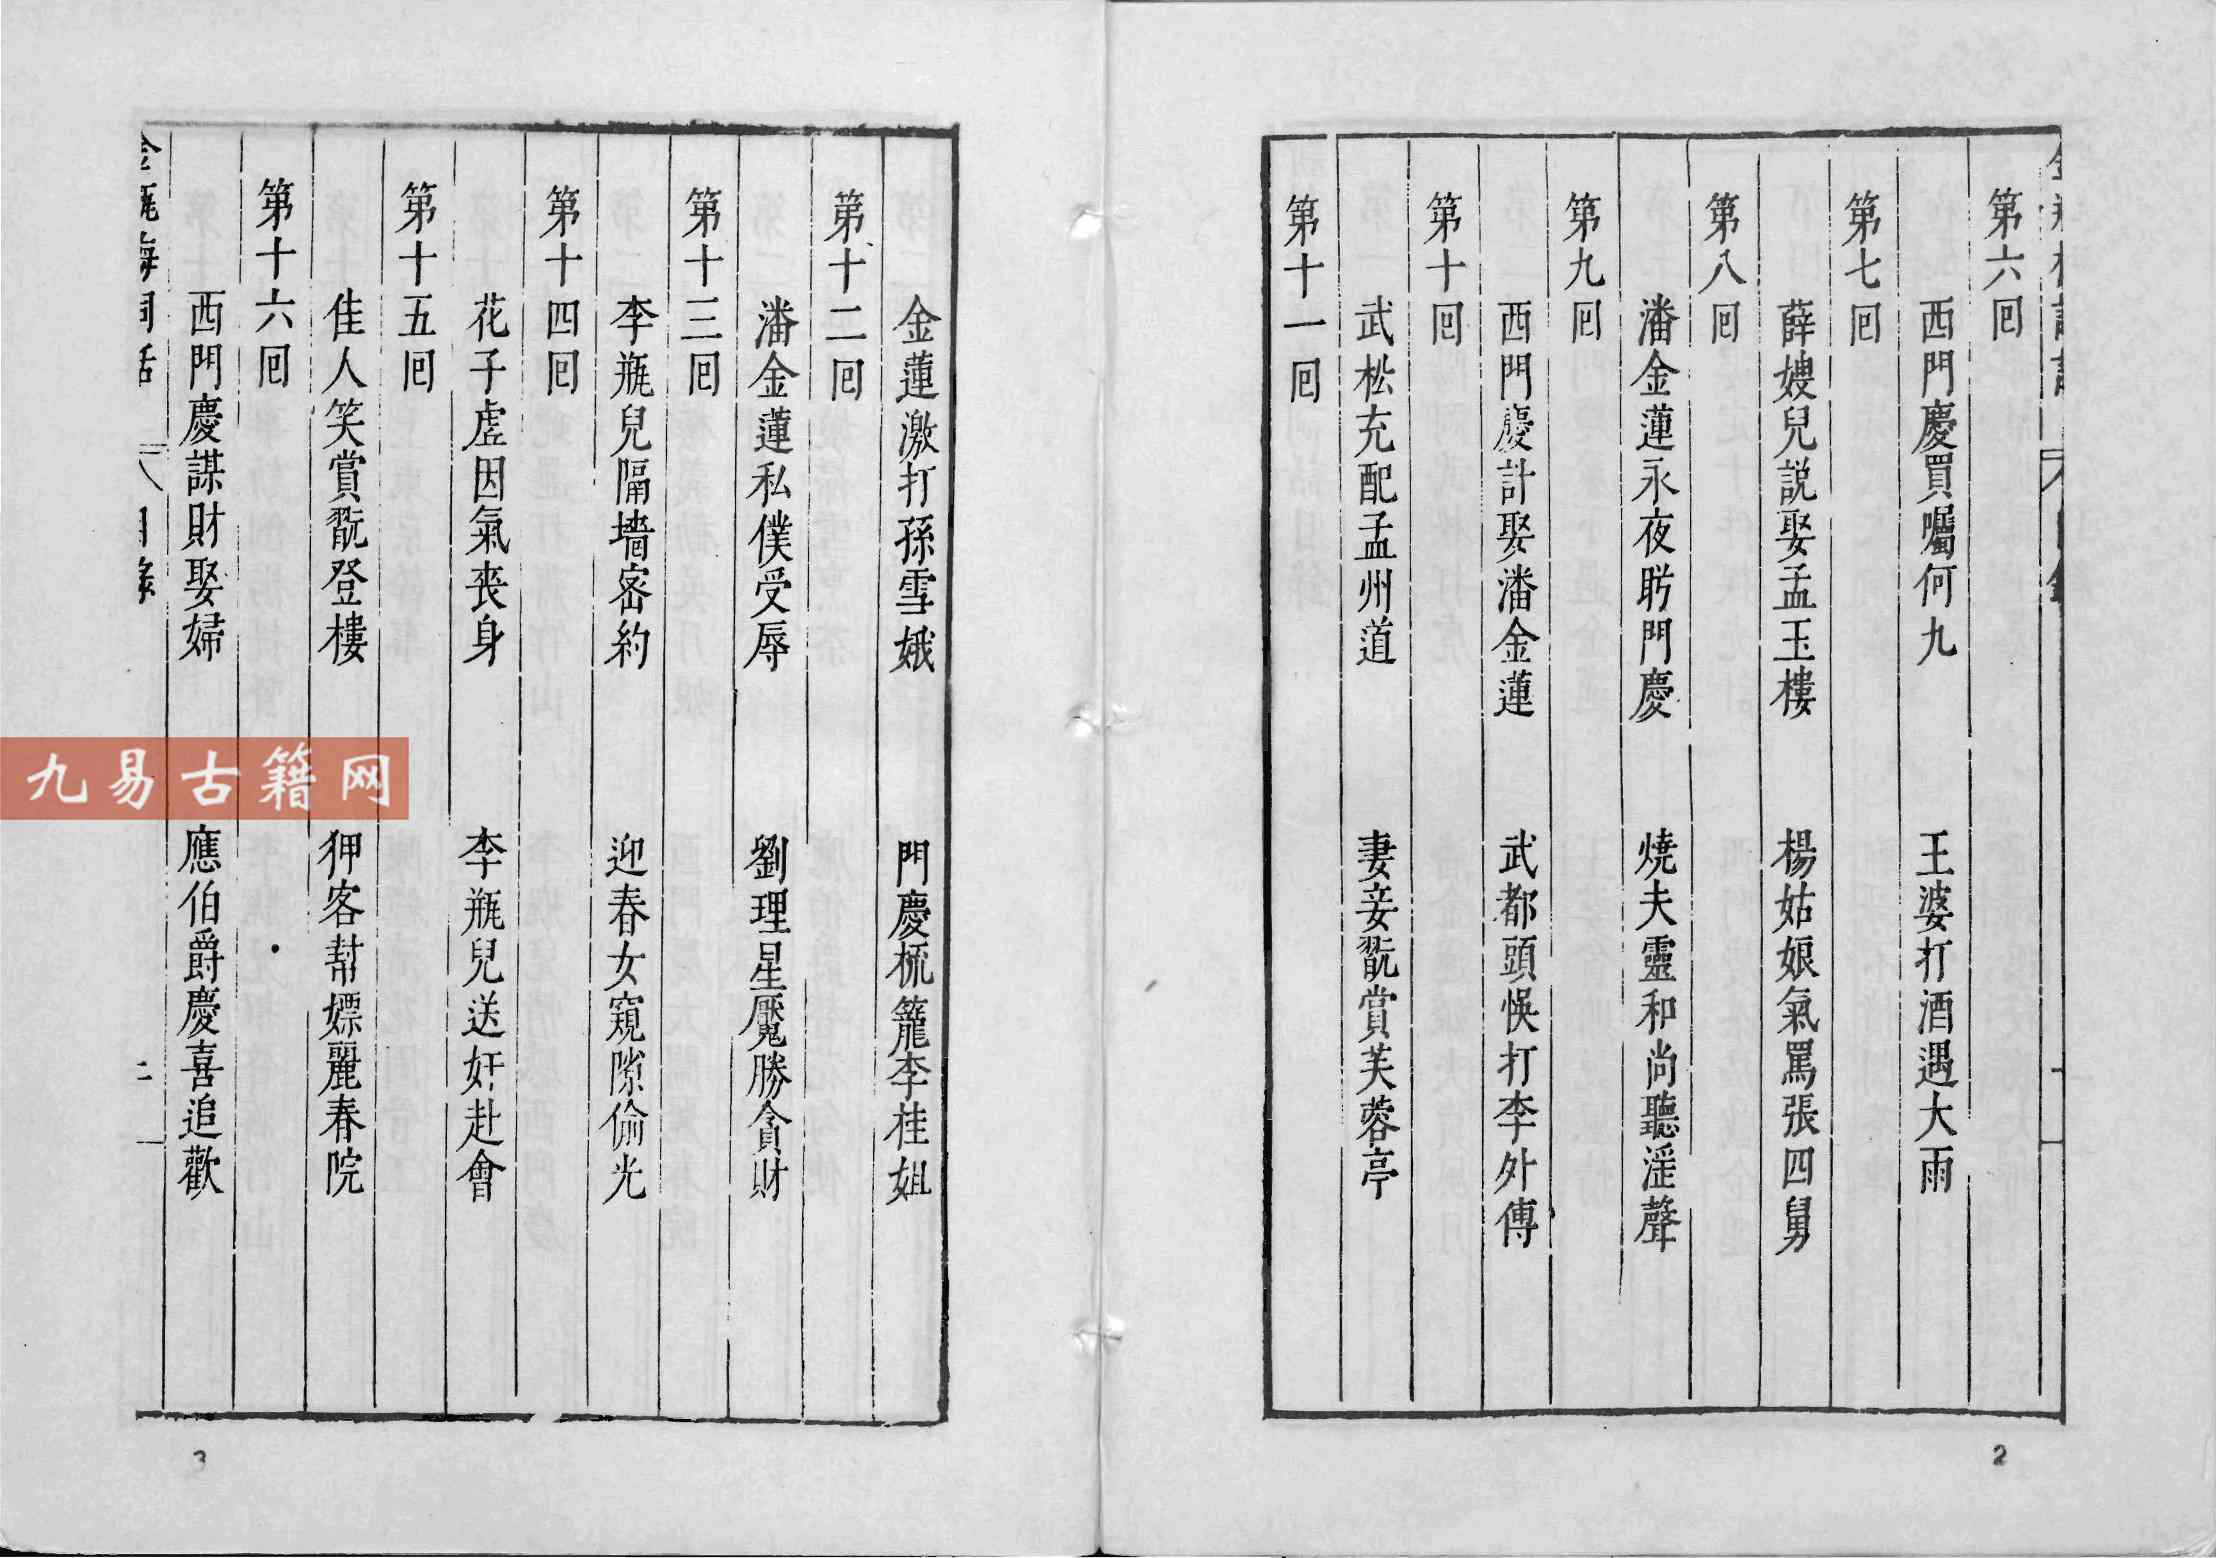 第六囘
西門慶買囑何九　王婆打酒遇大雨
第七囘
薛嫂兒説娶孟玉樓　楊姑娘氣罵張四舅
第八囘
潘金蓮永夜盻門慶　燒夫靈和尚聽淫聲
第九囘
西門慶計娶潘金蓮　武都頭悞打李外傳
第十囘
武松充配孟州道　妻妾翫賞芙蓉亭
第十一囘
2
金蓮激打孫雪娥　門慶梳籠李桂姐
第十二囘
潘金蓮私僕受辱　劉理星魘勝貪財
第十三囘
李瓶兒隔墻宻約　迎春女窺隙偷光
第十四囘
花子虛因氣喪身　李瓶兒送奸赴會
第十五囘
佳人笑賞翫登樓　狎客幫嫖麗春院
第十六囘
西門慶謀財娶婦　應伯爵慶喜追歡
金瓶梅詞話　目錄　二
3
九易古籍网